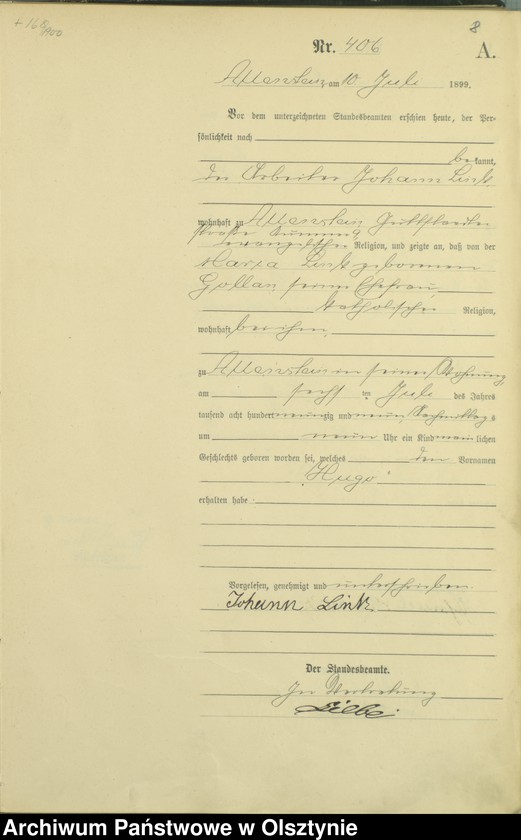 + 168/900
8
Nr. 406
A.
Allenstein, am 10. Juli 1899.
Vor dem unterzeichneten Standesbeamten erschien heute, der Per-
sönlichkeit nach
bekannt,
der Arbeiter Johann Link
wohnhaft zu Allenstein Guttstaedter
straße
evangelischer Religion, und zeigte an, daß von der
Maria Link geborenen
Gollan seiner Ehefrau,
katholischer Religion,
wohnhaft bei ihm,
zu Allenstein in seiner Wohnung
am sechs ten Juli des Jahres
tausend acht hundert neunzig und neun, Nachmittags
um neun Uhr ein Kind männlichen
Geschlechts geboren worden sei, welches den Vornamen
"Hugo"
erhalten habe
Vorgelesen, genehmigt und unterschrieben
Johann Link
Der Standesbeamte.
In Vertretung
Archiwum Państwowe w Olsztynie